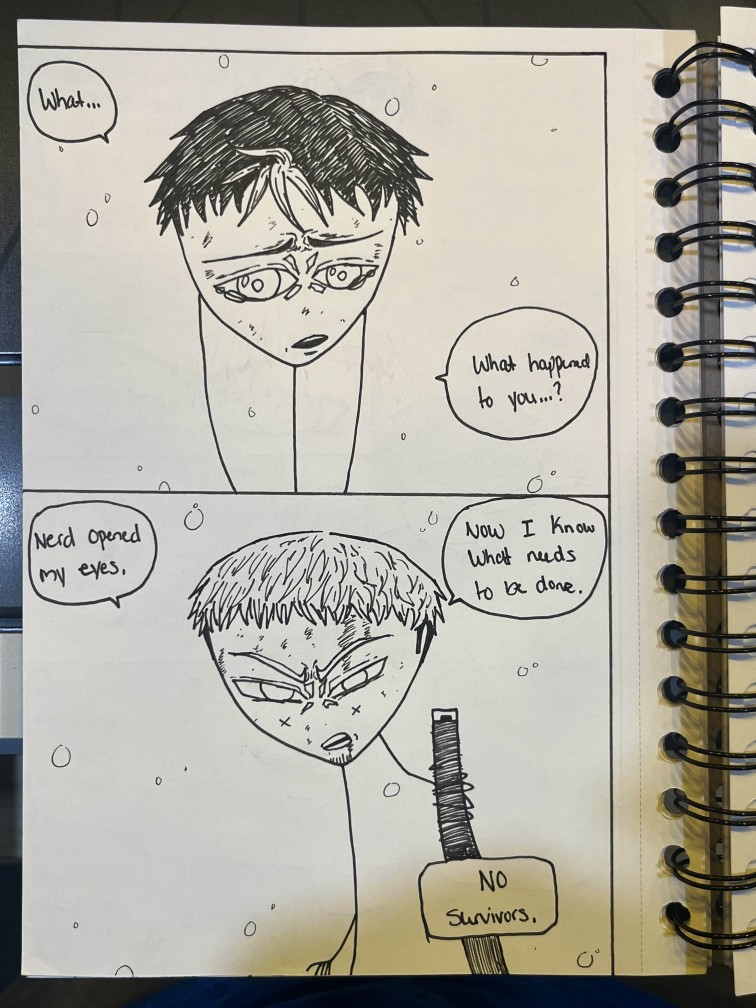 What...
What happened
to you...?
Nerd opened
my eyes.
Now I know
what needs
to be done.
NO
Survivors.